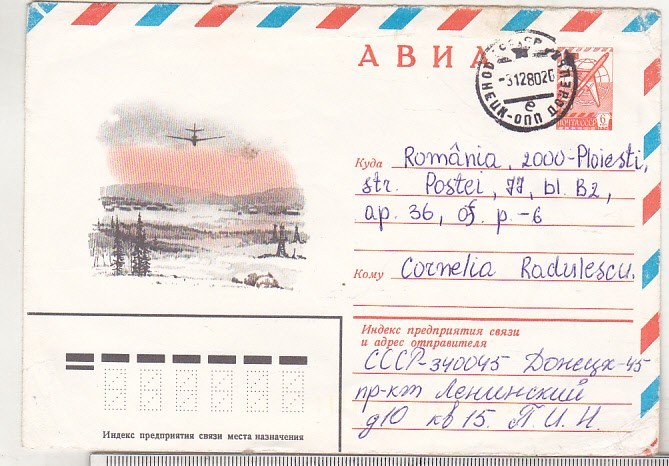 АВИА
СССР
ДОНЕЦК-ОПП
-3128020
ПОЧТА СССР
6
Куда România, 2000-Ploiesti,
str. Postei, 77, bl. B2,
ap. 36, of. p.-6
Кому Cornelia Radulescu.
Индекс предприятия связи
и адрес отправителя
СССР-340045 Донецк-45
пр-кт Ленинский
д10 кв 15. П.И.Н.
Индекс предприятия связи места назначения